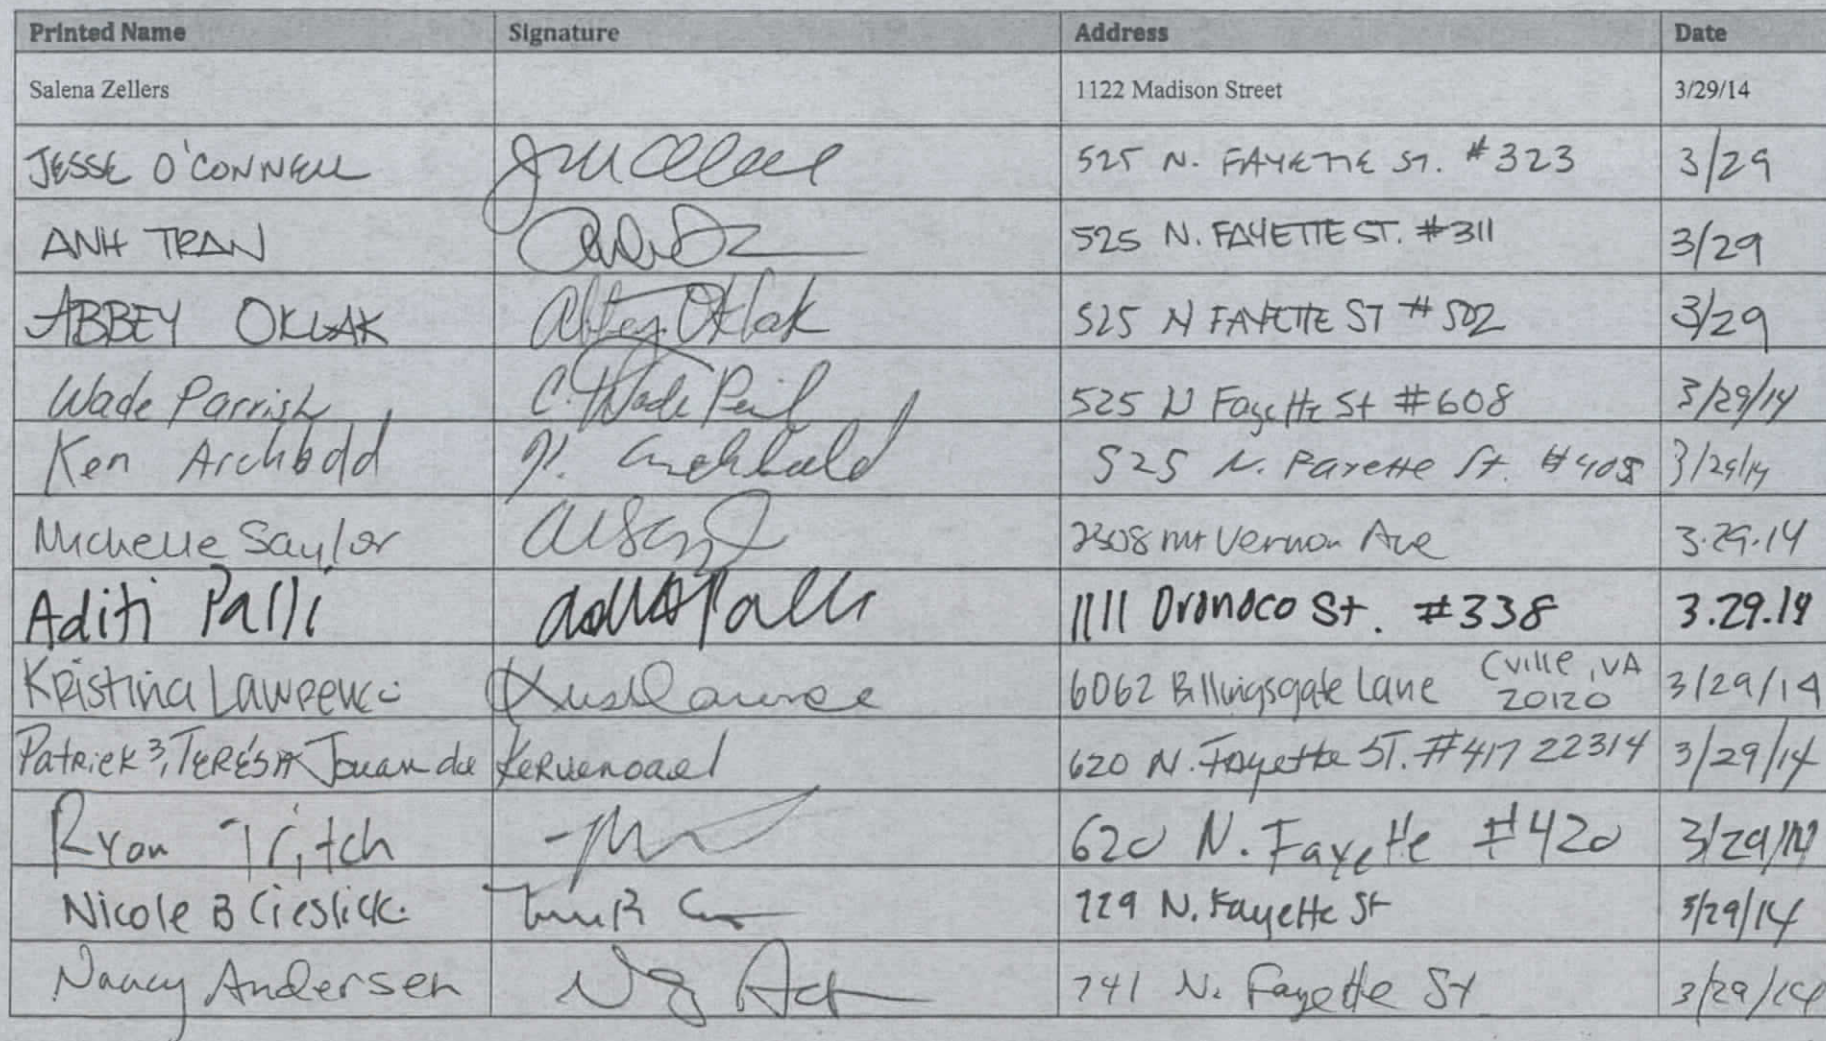 Printed Name Signature Address Date
Salena Zellers 1122 Madison Street 3/29/14
JESSE O'CONNELL 525 N. FAYETTE ST. #323 3/29
ANH TRAN 525 N. FAYETTE ST. #311 3/29
ABBEY OKLAK Abbey Oklak 525 N FAYETTE ST #502 3/29
Wade Parrish C. Wade 525 N Fayette St #608 3/29/14
Ken Archbold K. Archbold 525 N. Fayette St. #408 3/29/14
Michelle Saylor 2308 Mt Vernon Ave 3.29.14
Aditi Palli Aditi Palli 1111 Oronoco St. #338 3.29.14
Kristina Lawrence Kris Lawrence 6062 Billingsgate Lane Cville, VA 20120 3/29/14
Patrick TERÉSA Jouan de Kervenoael 620 N. Fayette ST. #417 22314 3/29/14
Ryan Tritch 620 N. Fayette #420 3/29/14
Nicole B Cieslick 729 N. Fayette St 3/29/14
Nancy Andersen 741 N. Fayette St 3/29/14